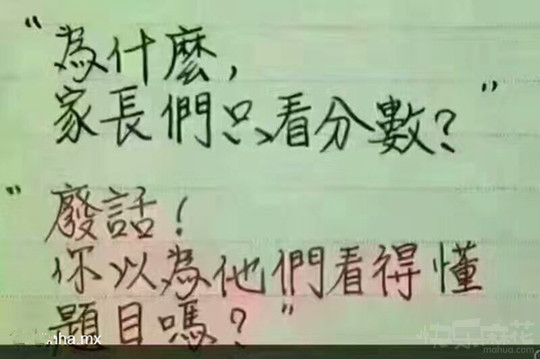 “為什麼，
家長們只看分數？”
“廢話！
你以為他們看得懂
題目嗎？”
ha.mx
快乐麻花
mahua.com